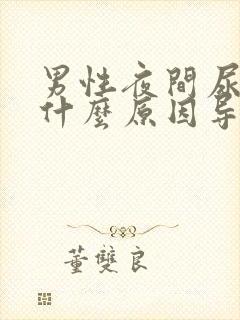 男性夜間尿
什麼原因导
董雙良